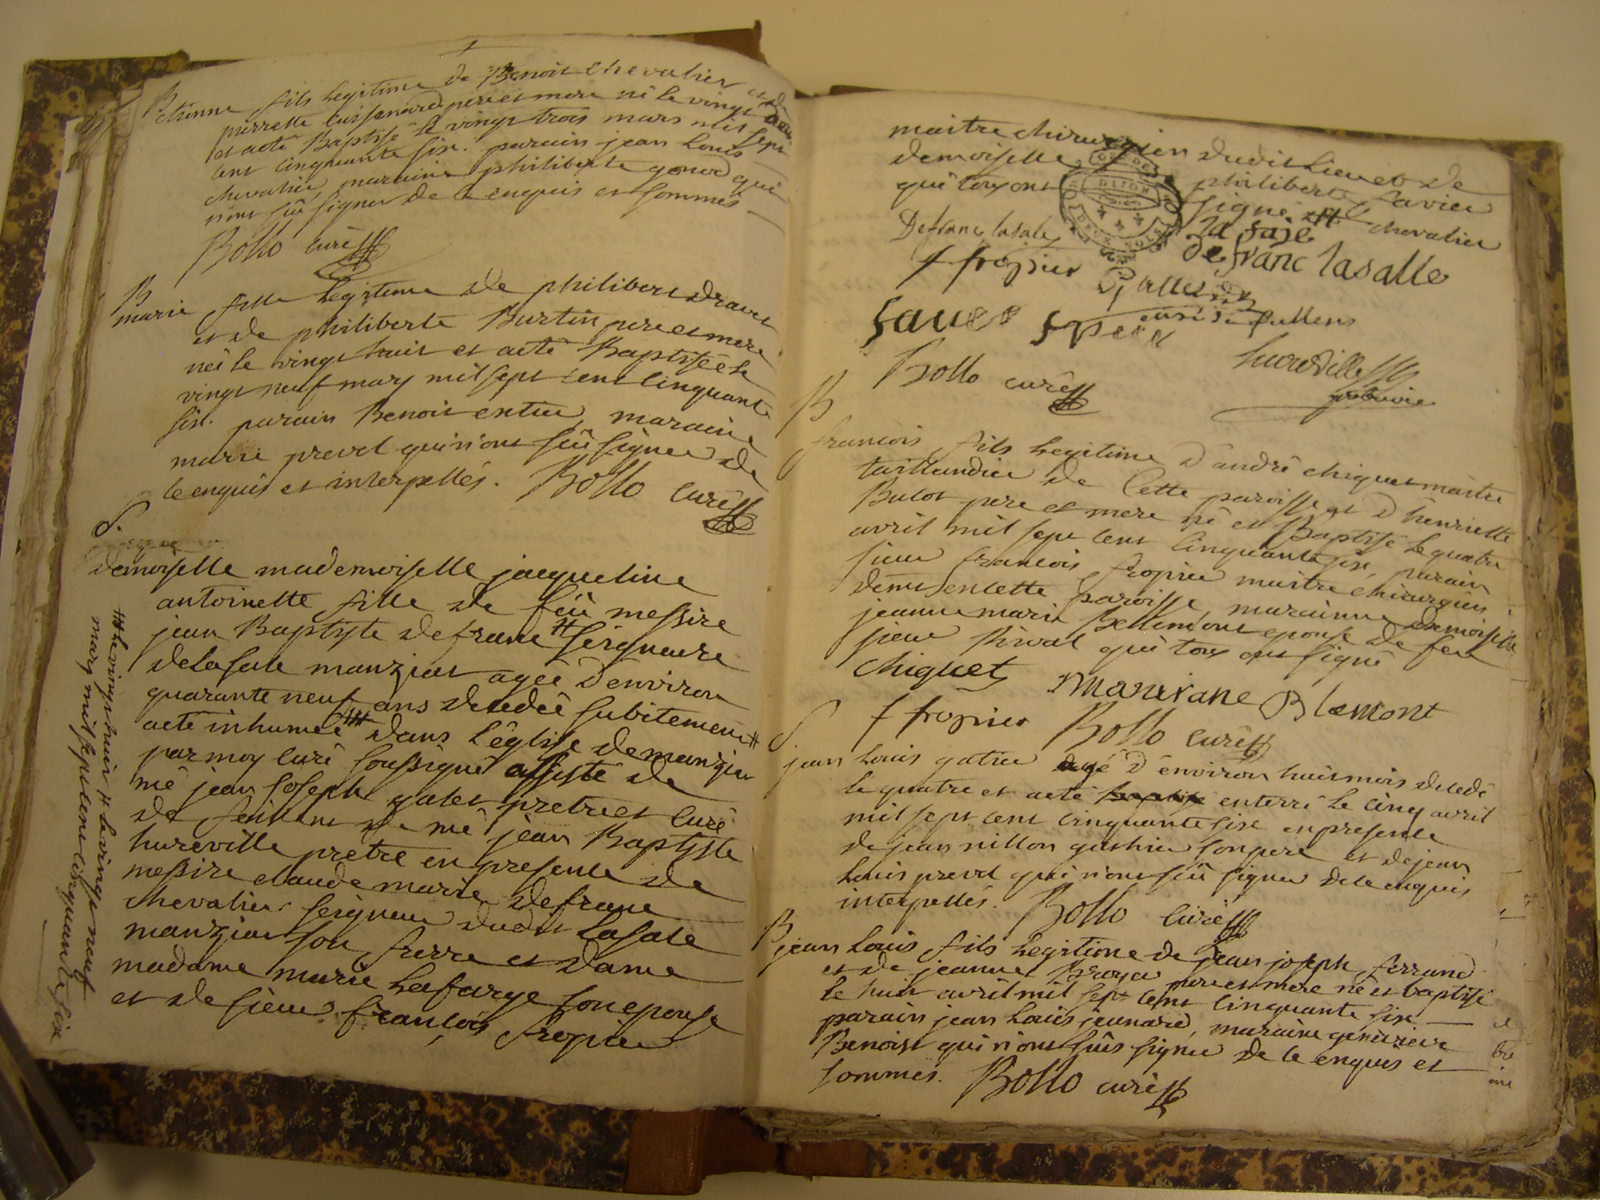 B
etienne fils legitime de Benoit chevalier et de
pierrette buissonard pere et mere né le vingt deux
et aeté Baptisé le vingt trois mars mil sept
cent cinquante six. parain jean Louis
chevalier, maraine philiberte gonod qui
n'ont sçû signer de ce enquis et sommés
Bollo curé
B
marie fille legitime de philibert drouet
et de philiberte Burtin pere et mere
née le vingt huit et aeté Baptisée le
vingt neuf mars mil sept cent cinquante
six. parain Benoit entier, maraine
marie prevel qui n'ont sçû signer de
ce enquis et interpellés. Bollo curé
S.
demoiselle mademoiselle jacqueline
antoinette fille de feû messire
jean Baptiste defranc # seigneure
delasale manziat agée d'environ
quarante neuf ans decedée subitement #
aeté inhumée ## dans l'église de manziat
par moy curé soussigné assisté de
mê jean joseph gallet pretre et curé
de feillens de mê jean Baptiste
hureville pretre en presence de
messire claude marie defranc
chevalier, seigneur dudit lasale
manziat son frerre et dame
madame marie Lafarge son epouse
et de sieur françois fropier
## le vingt huit # le vingt neuf
mars mil sept cent cinquante six
maitre chirurgien dudit Lieu et de
demoiselle philiberte favier
qui tous ont signé ## chevalier
Defranc lasale La farge
defranc lasalle
f fropier Gallet
curé de feillens
favier
Bollo curé hureville
B
françois fils legitime d'andré chiquet maitre
taillandier de Cette paroisse et d'henriette
Bulot pere et mere né et Baptisé le quatre
avril mil sept cent cinquante six, parain
sieur francois fropier maitre chirurgien
demt en cette paroisse, maraine demoiselle
jeanne marie Bellemont epouse de feu
sieur Rival qui tous ont signé
chiquet mariane Blemont
f fropier Bollo curé
S
jean Louis gatier agé d'environ huit mois decedé
le quatre et aeté enterré le cinq avril
mil sept cent cinquante six en presence
de jean nillon gathier son pere et de jean
Louis prevel qui n'ont sçû signer de ce enquis
interpellés. Bollo Curé
B
jean Louis fils Legitime de jean joseph ferrand
et de jeanne Broyer pere et mere né et baptisé
le huit avril mil sept cent cinquante six
parain jean Louis jeunard, maraine
Benoist qui n'ont sçûs signer de ce enquis et
sommés. Bollo curé